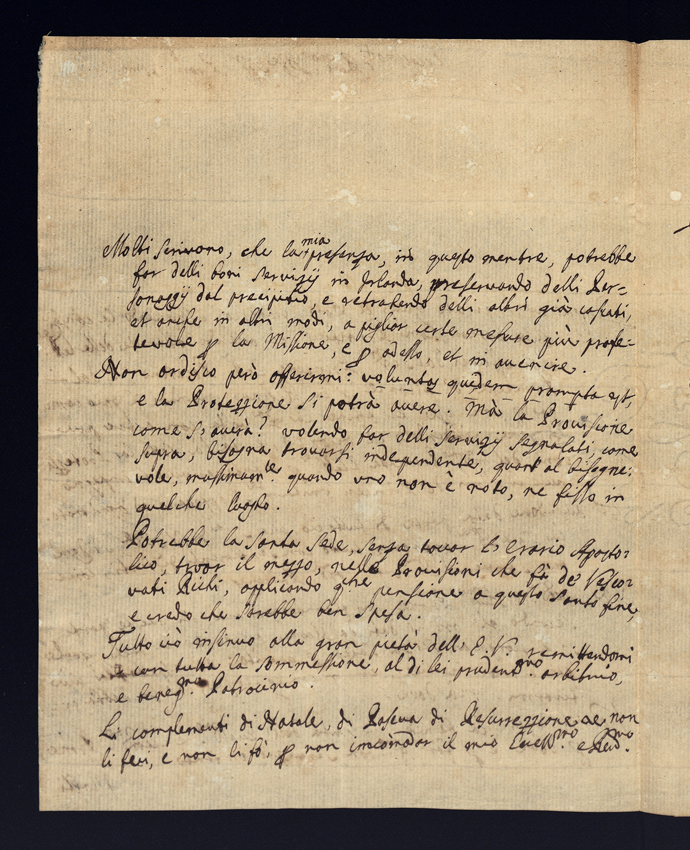 Molti scrivono, che la mia presenza, in questo mentre, potrebbe
far delli boni servizÿ in Irlanda, preservando delli Per-
sonaggÿ dal precipitio, e retrahendo delli altri già cascati,
et anche in altri modi, a pigliar certe mesure più profe-
tevole p la Missione, e p adesso, et in avenire.
Non ardisco però offerirmi: voluntas quedem prompta est,
e la Protezzione si potrà avere. Mà la Provisione
come s'averà? volendo far delli servizÿ segnalati, come
supra, bisogna trovarsi independente, quant al bisogne-
vole, massimamte quando uno non è noto, ne fisso in
qualche luogo.
Potrebbe la Santa Sede, senza tocar l'Erario Aposto-
lico, trovar il mezzo, nelle Provisioni che fà de Vesco-
vati Ricchi, applicando qche pensione a questo Santo fine,
e credo che sarebbe ben spesa.
Tutto ciò insinuo alla gran pietà dell' E. V. remittendomi
con tutta la sommessione, al di lei prudentmo arbitrio,
e benegno Patrocinio.
Li complementi di Natale, di Pascua di Resurrezzione non
li feci, e non li fò, p non incomodar il mio Emmo e Revmo